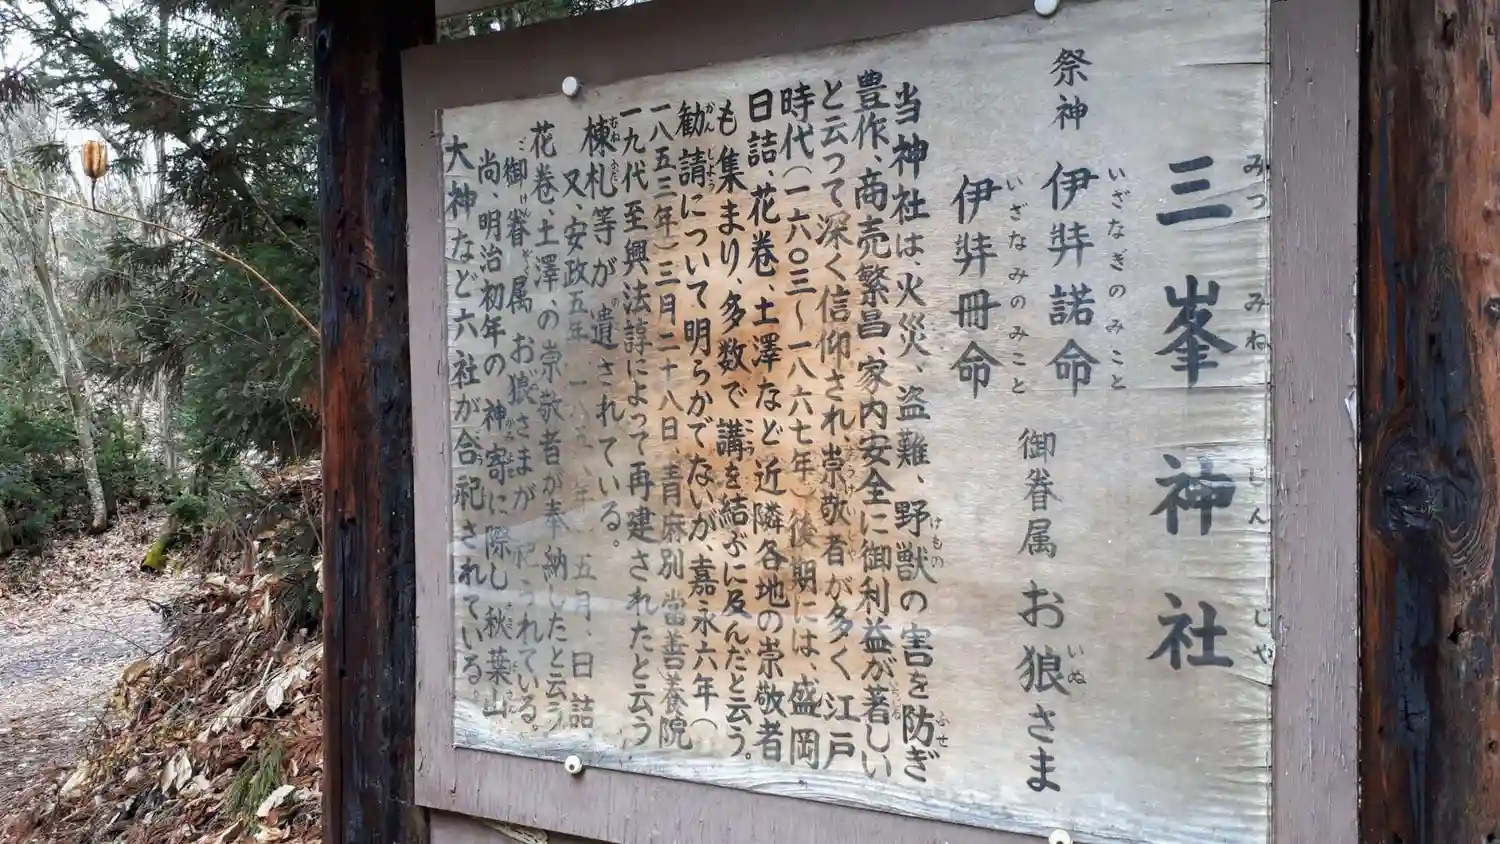 三峯神社
みつみねじんじゃ
祭神 伊弉諾命 御眷属 お狼さま
いざなぎのみこと いぬ
伊弉冊命
いざなみのみこと
当神社は火災、盗難、野獣の害を防ぎ
けもの ふせ
豊作、商売繁昌、家内安全に御利益が著しい
と云って深く信仰され、崇敬者が多く江戸
時代（一六〇三〜一八六七年）後期には、盛岡
日詰、花巻、土澤など近隣各地の崇敬者
も集まり、多数で講を結ぶに及んだと云う。
こう
勧請について明らかでないが、嘉永六年（
かんじょう
一八五三年）三月二十八日、青麻別當善養院
一九代至興法諄によって再建されたと云う
棟札等が遺されている。
むねふだ
又、安政五年 五月、日詰、
花巻、土澤、の崇敬者が奉納したと云う
御眷属 お狼さまが 祀られている。
尚、明治初年の 神寄に際し 秋葉山
大神など六社が合祀されている。